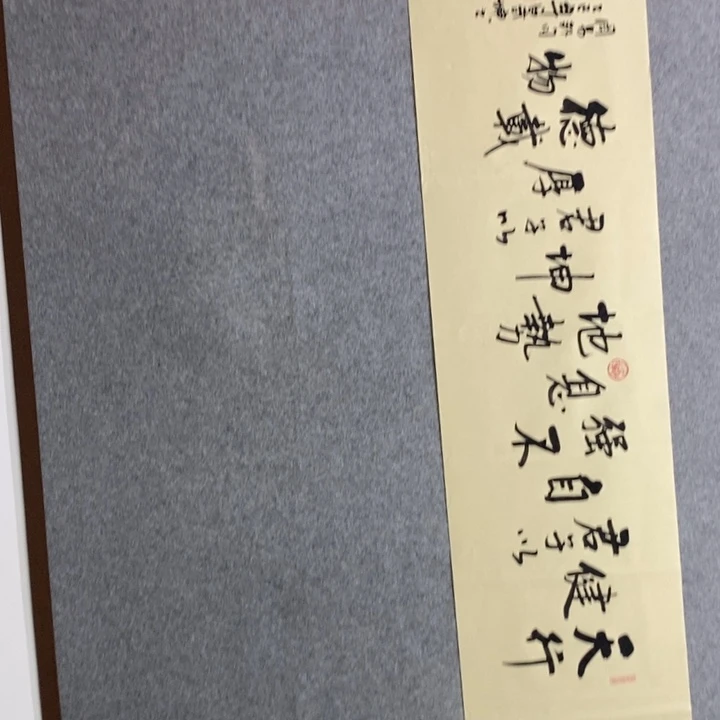 天行
健
君子以
自
强不
息
地勢
坤
君子以
厚
德載
物